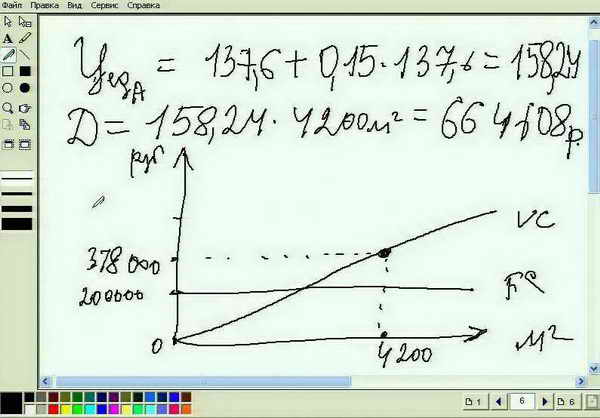 Файл Правка Вид Сервис Справка
Цед А = 137,6 + 0,15 · 137,6 = 158,24
Д = 158,24 · 4200 м² = 664 608 р.
руб
VC
378 000
200000
FC
0
4200
м²
1
6
6